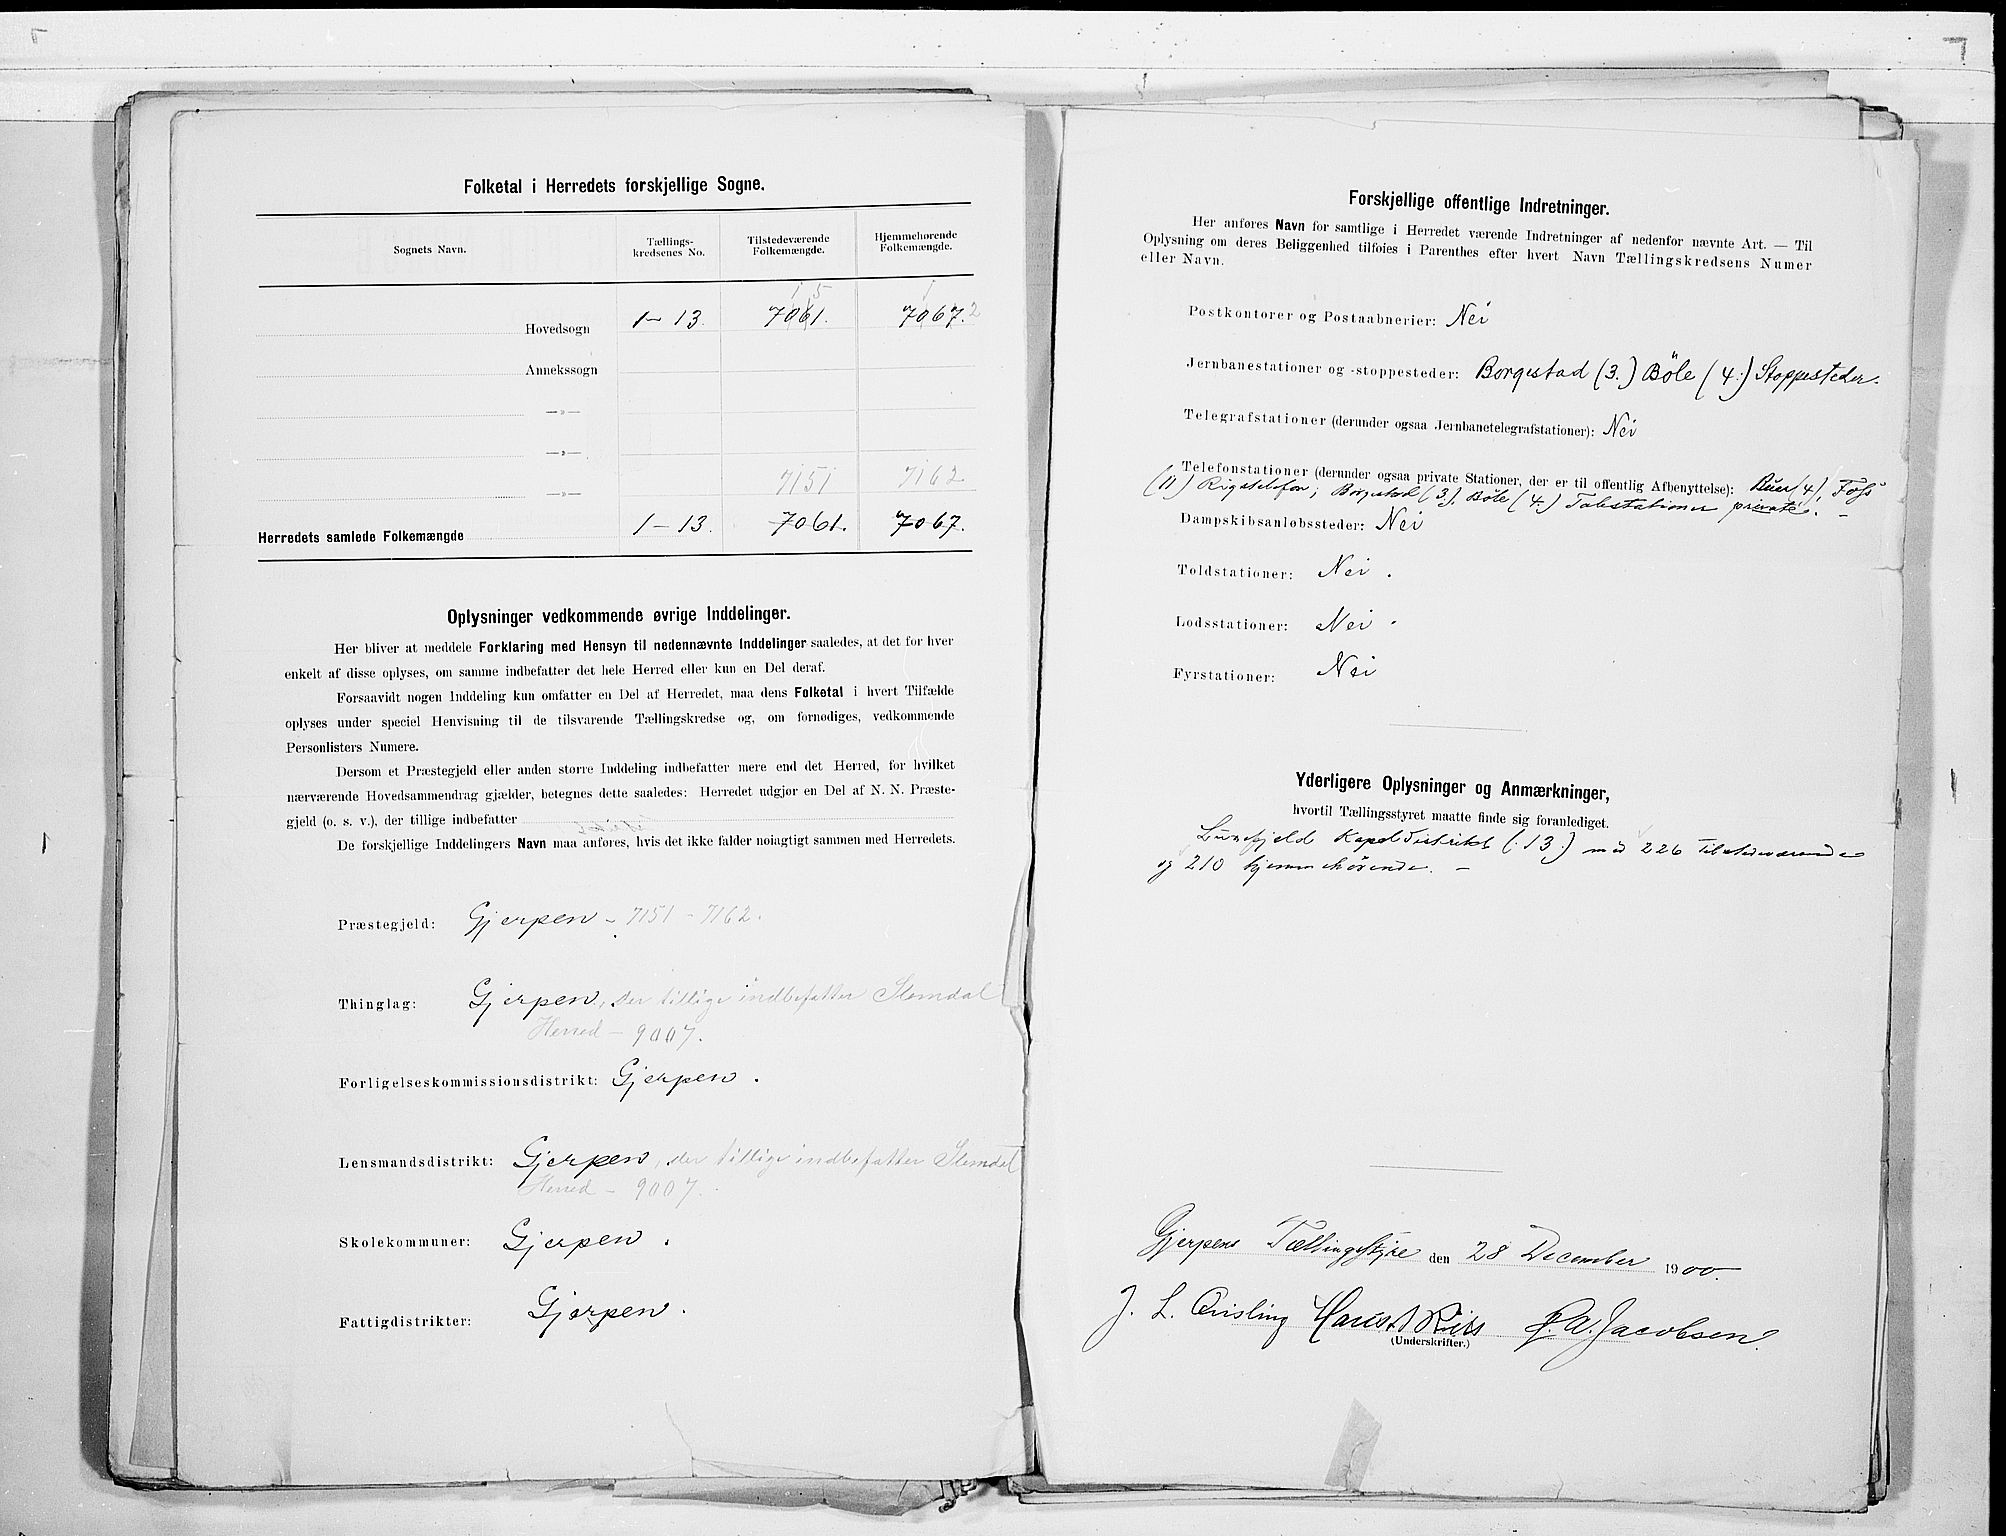 Folketal i Herredets forskjellige Sogne.
Sognets Navn.
Tællings-
kredsenes No.
Tilstedeværende
Folkemængde.
Hjemmehørende
Folkemængde.
1 5
1
Hovedsogn 1-13. 7061. 7067. 2
Annekssogn
—»—
—»—
—»— 7151 7162
Herredets samlede Folkemængde 1-13. 7061. 7067.
Oplysninger vedkommende øvrige Inddelinger.
Her bliver at meddele Forklaring med Hensyn til nedennævnte Inddelinger saaledes, at det for hver
enkelt af disse oplyses, om samme indbefatter det hele Herred eller kun en Del deraf.
Forsaavidt nogen Inddeling kun omfatter en Del af Herredet, maa dens Folketal i hvert Tilfælde
oplyses under speciel Henvisning til de tilsvarende Tællingskredse og, om fornødiges, vedkommende
Personlisters Numere.
Dersom et Præstegjeld eller anden større Inddeling indbefatter mere end det Herred, for hvilket
nærværende Hovedsammendrag gjælder, betegnes dette saaledes: Herredet udgjør en Del af N. N. Præste-
gjeld (o. s. v.), der tillige indbefatter
De forskjellige Inddelingers Navn maa anføres, hvis det ikke falder nøiagtigt sammen med Herredets.
Præstegjeld: Gjerpen - 7151 - 7162.
Thinglag: Gjerpen, der tillige indbefatter Slemdal
Herred - 9007.
Forligelseskommissionsdistrikt: Gjerpen.
Lensmandsdistrikt: Gjerpen, der tillige indbefatter Slemdal
Herred - 9007.
Skolekommuner: Gjerpen.
Fattigdistrikter: Gjerpen.
Forskjellige offentlige Indretninger.
Her anføres Navn for samtlige i Herredet værende Indretninger af nedenfor nævnte Art. — Til
Oplysning om deres Beliggenhed tilføies i Parenthes efter hvert Navn Tællingskredsens Numer
eller Navn.
Postkontorer og Postaabnerier: Nei
Jernbanestationer og -stoppesteder: Borgestad (3.) Böle (4.) Stoppesteder.
Telegrafstationer (derunder ogsaa Jernbanetelegrafstationer): Nei
Telefonstationer (derunder ogsaa private Stationer, der er til offentlig Afbenyttelse): Buer (4), Foss
(11) Rigstelefon; Borgestad (3), Böle (4.) Talestationer private. -
Dampskibsanløbssteder: Nei
Toldstationer: Nei.
Lodsstationer: Nei.
Fyrstationer: Nei
Yderligere Oplysninger og Anmærkninger,
hvortil Tællingsstyret maatte finde sig foranlediget.
Luxefjeld Kapeldistrikt (13.) med 226 Tilstedeværende
og 210 hjemmehørende. -
Gjerpens Tællingsstyre den 28 December 1900.
J. L. Qvisling Hans A Riis P. A. Jacobsen.
(Underskrifter.)